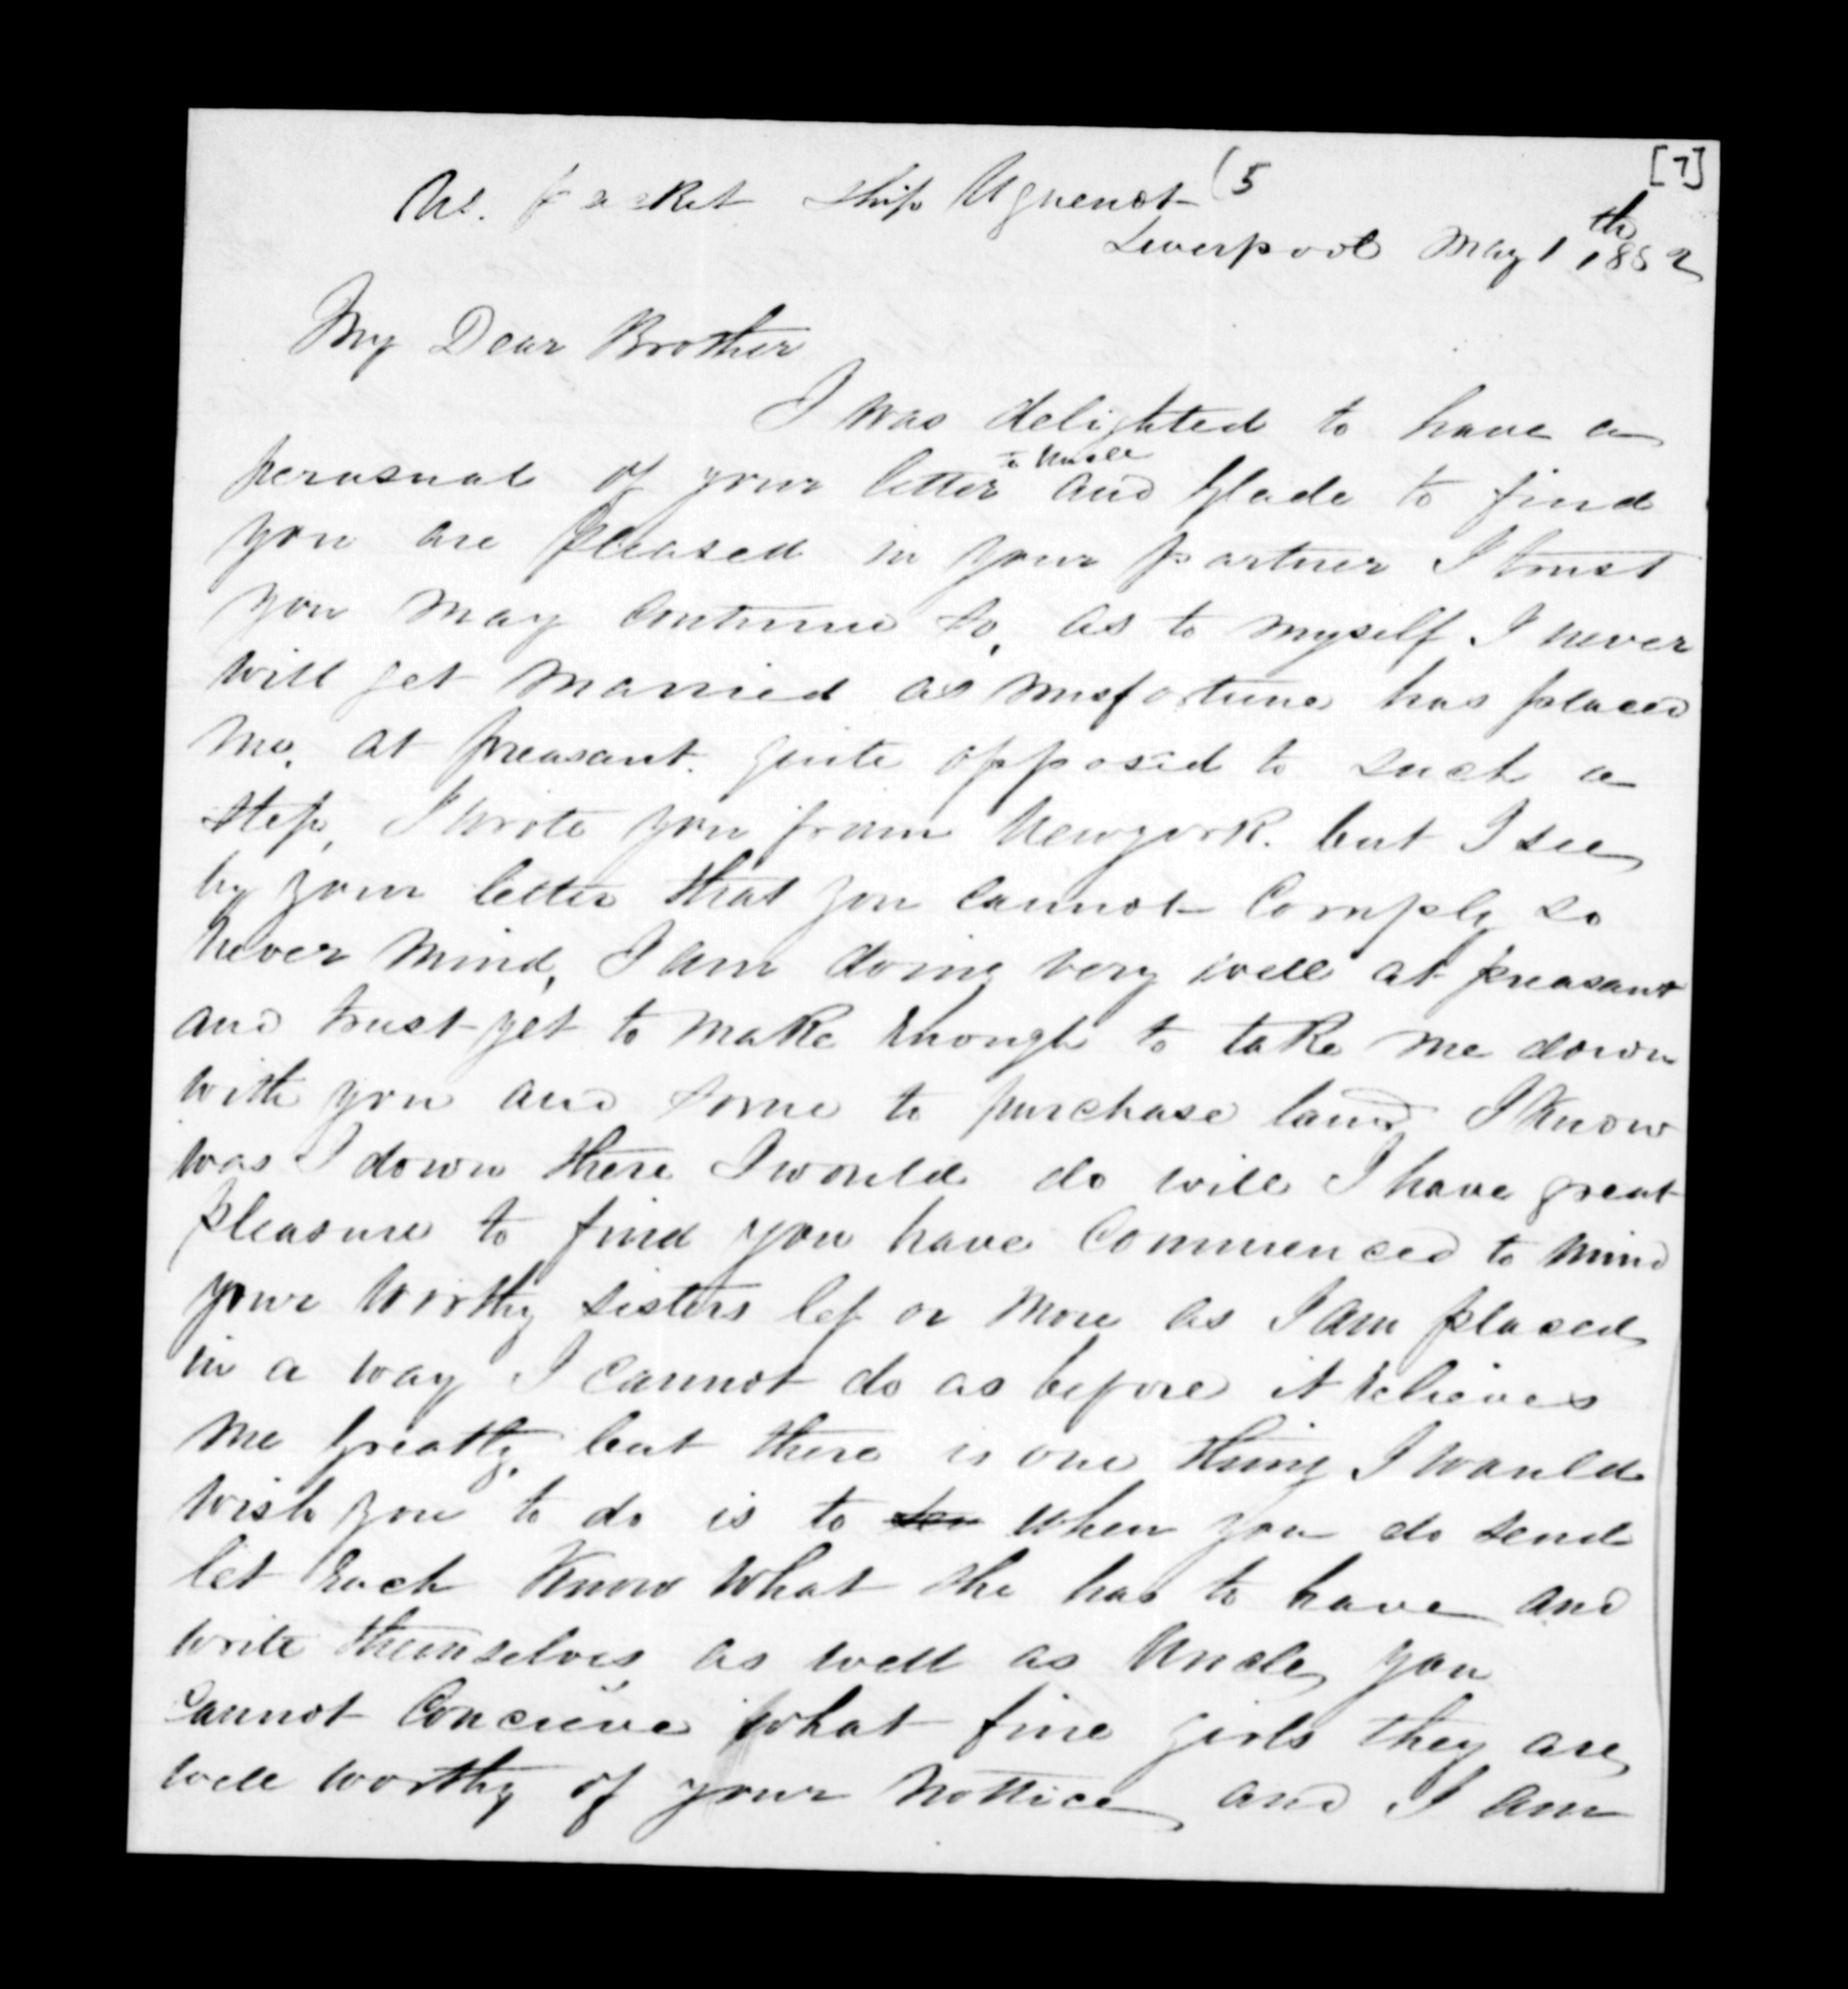 [7]
Us. Packet Ship Uguenot (5
Liverpool May 1th 1852
My Dear Brother
I was delighted to have a
perusual of your letter to Uncle and Glade to find
you are pleased in your partner I trust
you may Continue So, as to myself I never
will get Married as misfortune has placed
me, at preasant. quite opposed to such a
step, I wrote you from Newyork. but I see
by your letter that you Cannot Comply so
never Mind, I am doing very well at preasant
and trust yet to make Enough to take me down
with you and some to purchase land I Know
was I down there I would do will I have great
pleasure to find you have Commenced to mind
your worthy sisters lef or more as I am placed
in a way I Cannot do as before it relieves
me Greatly, but there is one thing I would
wish you to do is to when you do send
let Each Know what she has to have and
write themselves as well as Uncle, you
Cannot Concieve what fine girls they are
well worthy of your Nottice and I am